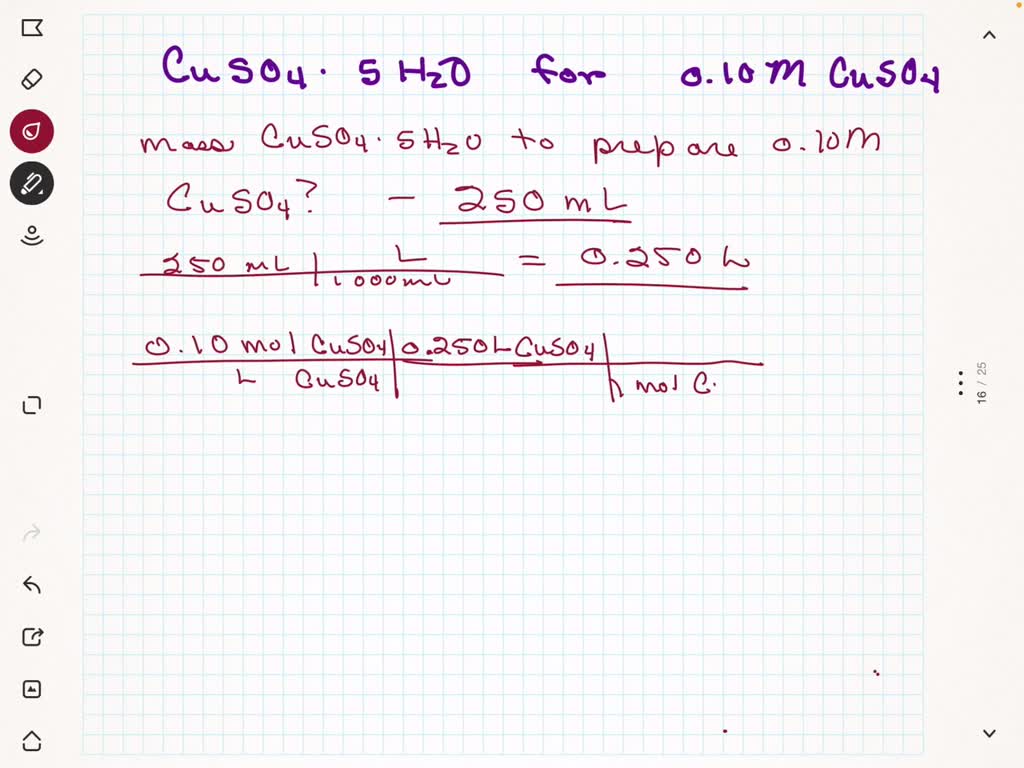 CuSO4 · 5 H2O for 0.10M CuSO4
mass CuSO4 · 5H2O to prepare 0.10M
CuSO4? – 250 mL
250 mL | L = 0.250 L
1000mL
0.10 mol CuSO4 | 0.250L CuSO4 |
L CuSO4 | mol C
16 / 25